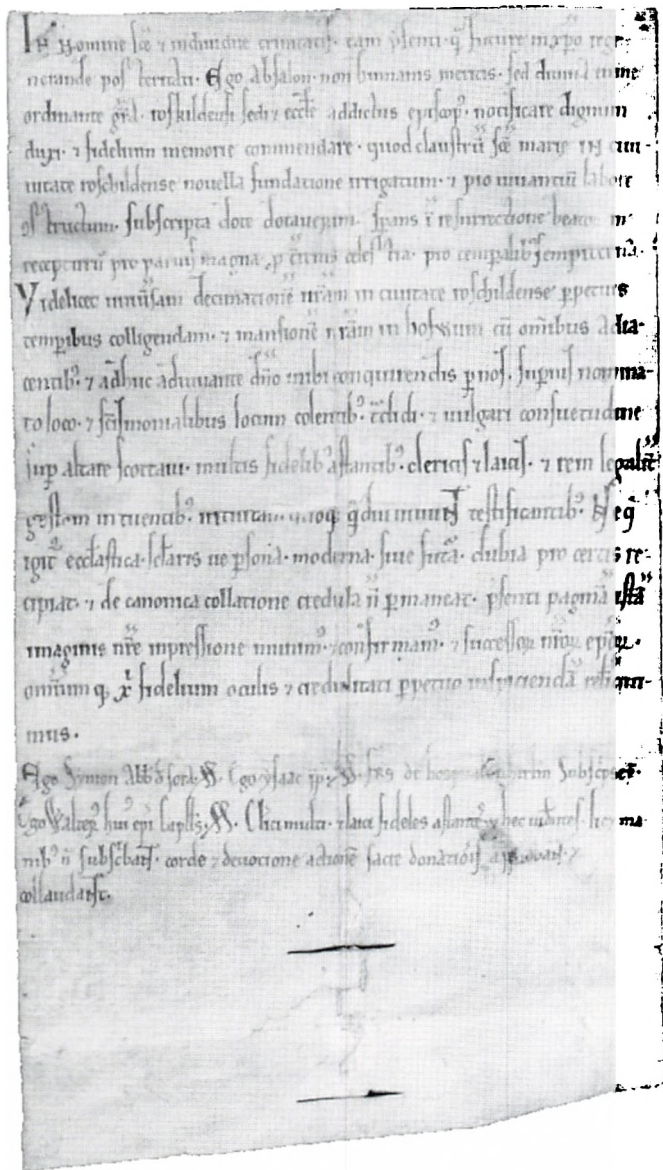 IN Nomine sc̄e ⁊ indiuidue trinitatis. tam p̄senti q̄ⁱ future in xp̄o rege-
nerande posteritati. Ego absalon. non humanis meritis. sed diuina
ordinante gr̄a. roskildensi sedi ⁊ eccl̄e addictus episcop᷒. notificare dignum
duxi. ⁊ fidelium memorie commendare. quod claustrū sc̄e marie IN ciui-
uitate roschildense nouella fundatione irrigatum. ⁊ pro uiuantiū labore
ꝯstructum. subscripta dote dotauerim. sperans ī resurrectione
recepturū pro paruis magna, ꝑ t̄renis celestia. pro temꝑalib᷒ sempiterna.
Videlicet decimationē nr̄am in ciuitate roschildense ꝑpetuis
temꝑibus colligendam. ⁊ mansionē nr̄am in cū omībus adia-
centib᷒. ⁊ adhuc adiuuante dn̄o mihi conquirendis ꝑ nos. suꝑius nomina-
to loco. ⁊ sc̄imonialibus locum colentib᷒. t̄didi. ⁊ uulgari consuetudine
suꝑ altare scottaui. multis fidelib᷒ astantib᷒. clericis ⁊ laicis. ⁊ rem legalit̄
gestam intuentib᷒. testificantib᷒. Ne q̄
igit᷒ eccl̄astica. sc̄laris ue ꝑsona. moderna. siue fut̄a. dubia pro certis re-
cipiat. ⁊ de canonica collatione credula n̄ ꝑmaneat. p̄senti paginā istā
imaginis nr̄e inpressione muniuim᷒. ⁊ confirmam᷒. ⁊ successoꝝ nr̄oꝝ ep̄oꝝ.
omīum q, xp̄i fidelium oculis ⁊ credulitati ꝑpetuo inspiciendā relinqui-
mus.
Ego Symon Abb̄ SS. Ego ysaac SS. de
Ego Walter᷒ hui᷒ ep̄i capll̄s, SS. Cl̄ici multi. ⁊ laici fideles astantes ⁊ hec uidentes. licet ma-
nib᷒ n̄ subsc̄bant. corde ⁊ deuocione actionē facte donatiōis ⁊
collaudant.